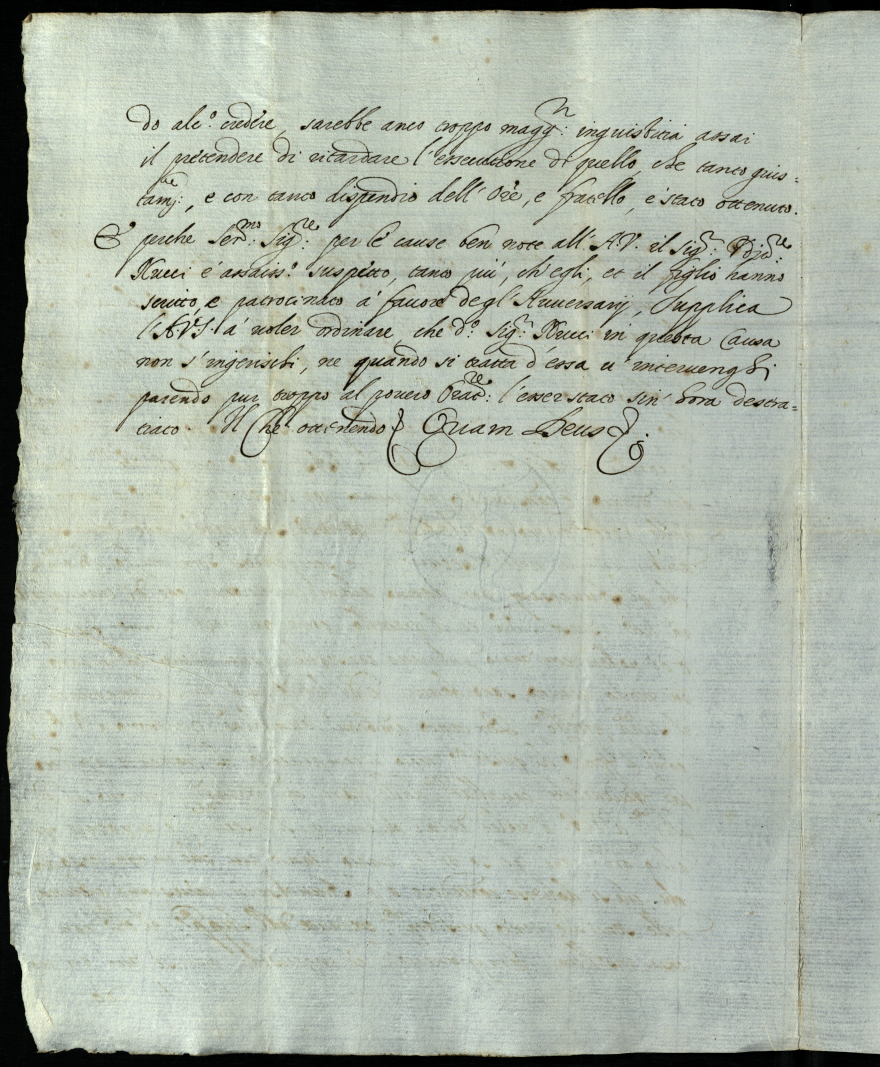 do alc.º credere, sarebbe anco troppo magg.r: ingiustitia assai
il pretendere di ritardare l'essecutione di quello, che tanto gius=
tam:te, e con tanto dispendio dell'Ore, e fratello, e stato ottenuto.
E perche Ser:mo Sig:re per le cause ben note all'A.V. il Sig:r Vdit:re
Nucci é assaiss.º suspetto, tanto piú, ch'egli, et il figlio hanno
scritto, e patrocinato á favore degl'Avversarij, supplica
l'A.V.S. á voler ordinare, che d.º Sig:r Nucci in questa Causa
non s'ingerischi, ne quando si tratta d'essa v'intervenghi
parendo pur troppo al povero Orat:re l'esser stato sin'hora destra=
tiato. Il Che ottenendo &c Quam Deus &c.